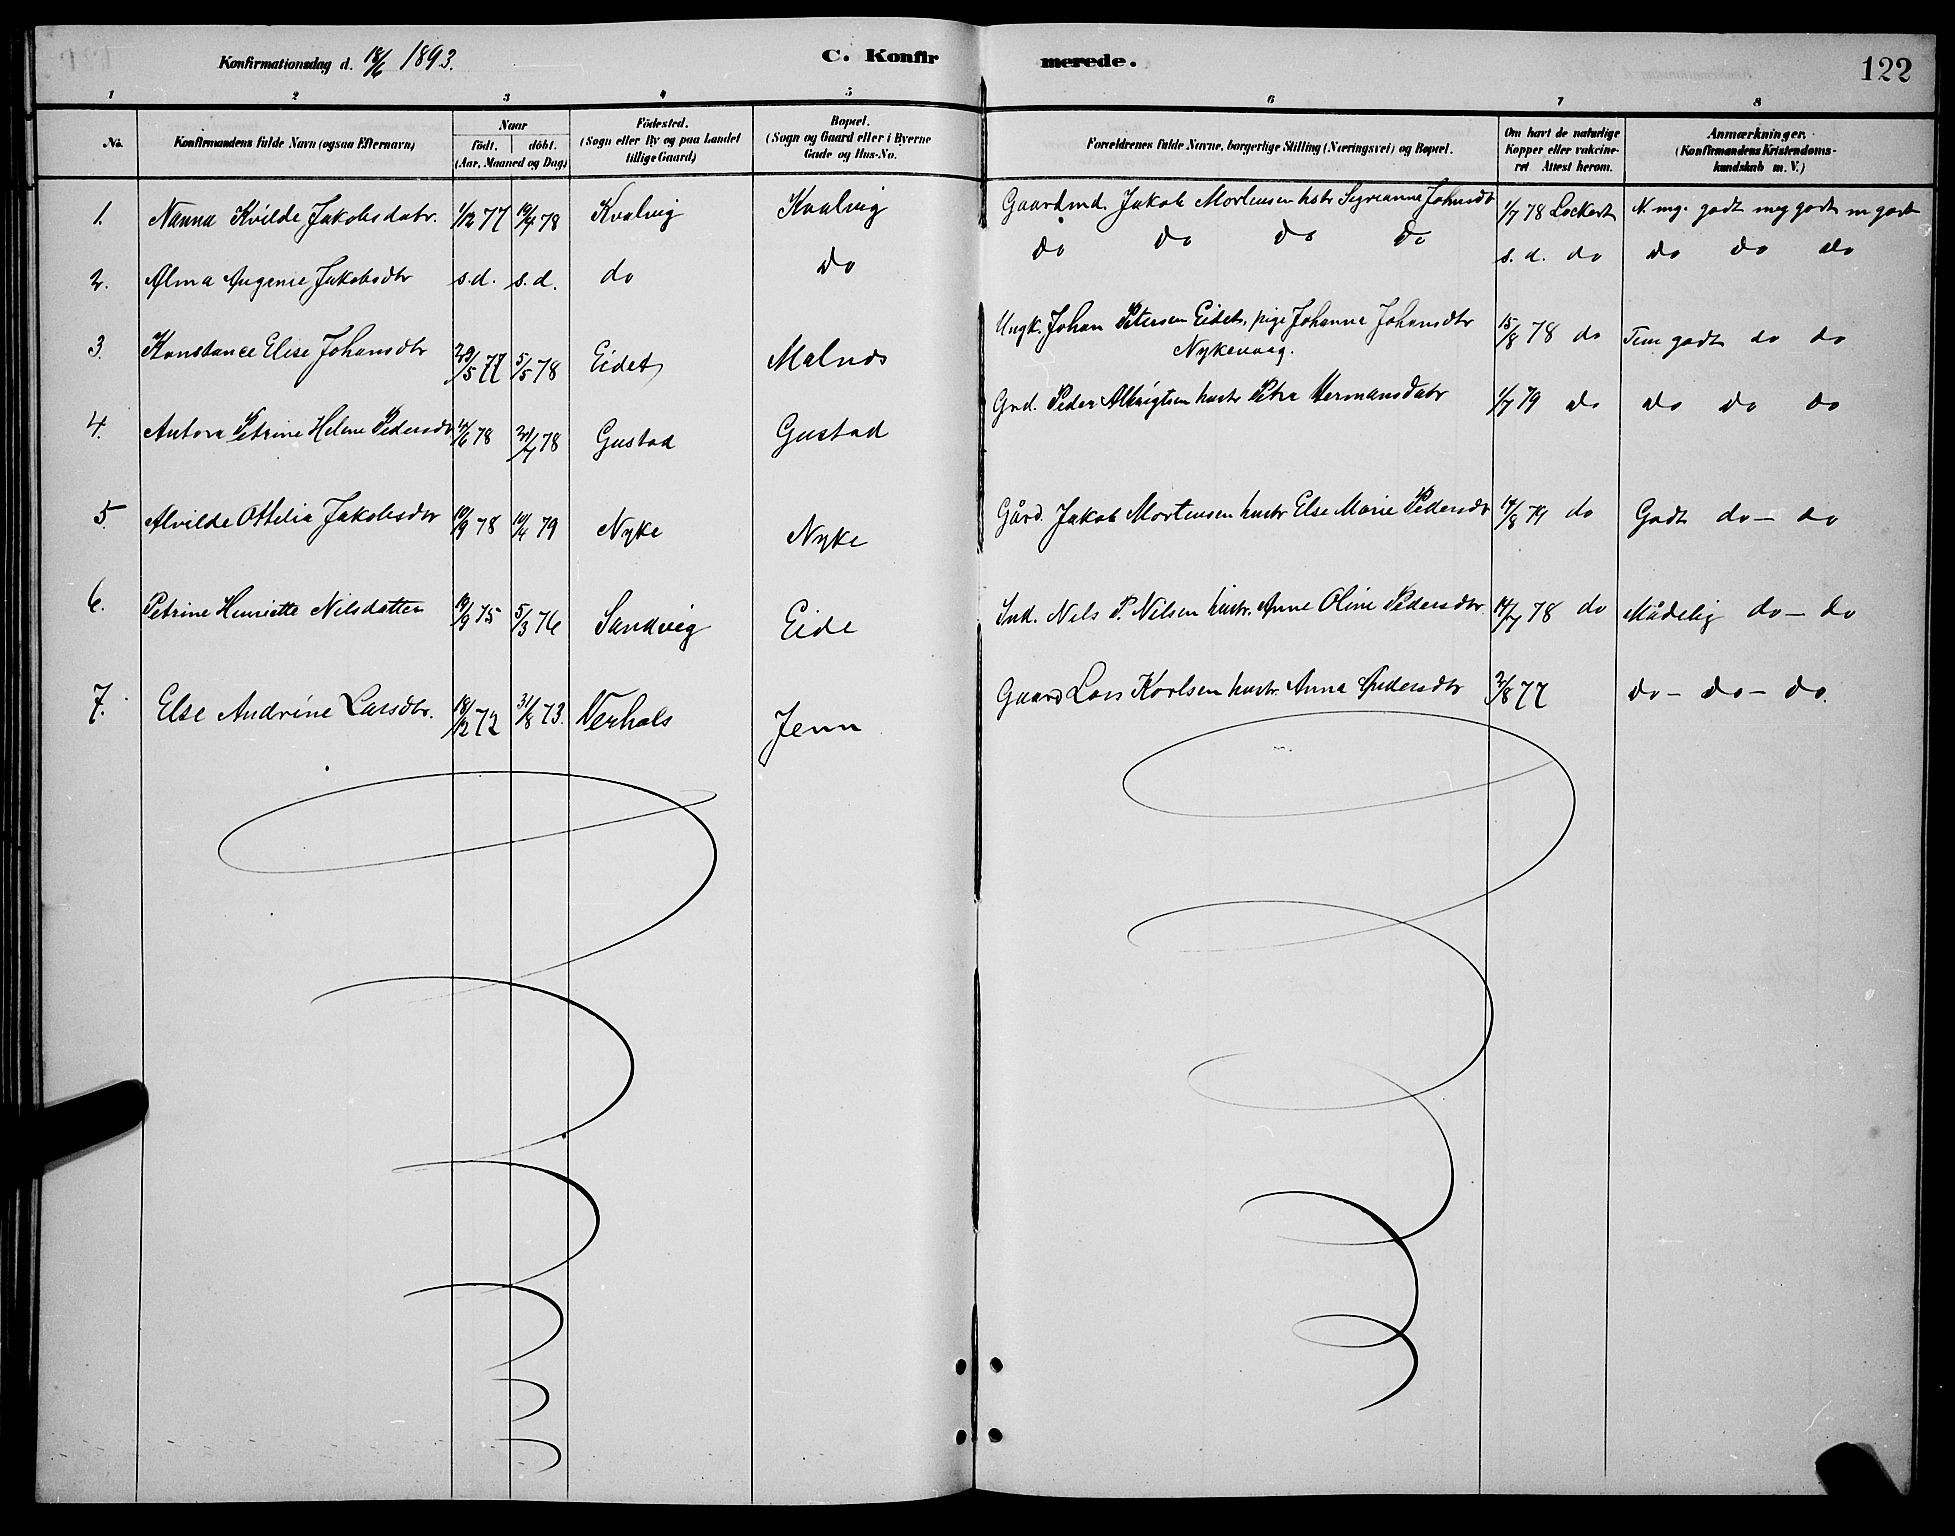 Konfirmationsdag d. 18/6 1893. C. Konfirmerede. 122
1 2 3 4 5 6 7 8
No. Konfirmandens fulde Navn (ogsaa Efternavn) Naar födt. döbt. (Aar, Maaned og Dag) Födested. (Sogn eller By og paa Landet tillige Gaard) Bopæl. (Sogn og Gaard eller i Byerne Gade og Hus-No. Forældrenes fulde Navne, borgerlige Stilling (Næringsvei) og Bopæl. Om havt de naturlige Kopper eller vakcineret Attest herom. Anmærkninger. (Konfirmandens Kristendomskundskab m. V.)
1. Nanna Kvilde Jakobsdatr. 1/12 77 19/4 78 Kvalvig Kvalvig Gaardmd. Jakob Mortensen hstr Syrianna Johnsdtr 1/7 78 Lockert N. mg. godt meg godt m godt
2. Alma Augenie Jakobsdtr s.d. s.d. do do do do do do s. d. do do do do
3. Konstance Elise Johansdtr 29/5 77 5/5 78 Eidet Malnes Ungk. Johan Petersen Eidet, pige Johanna Johansdtr Nykevaag. 15/8 78 do Tem godt do do
4. Antora Petrine Helene Pedersdtr 4/6 78 21/7 78 Gustad Gustad Grd. Peder Albrigtsen hustr Petra Hermansdatr 1/7 79 do do do do
5. Alvilde Ottelia Jakobsdtr 10/9 78 14/4 79 Nyke Nyke Gård. Jakob Mortensen hustr Else Marie Pedersdtr 14/8 79 do Godt do - do
6. Petrine Henriette Nilsdatter 19/9 75 5/3 76 Sandvig Eide Ind. Nils P. Nilsen hustr. Anne Oline Pedersdtr. 14/7 78 do Mådelig do - do
7. Else Andrine Larsdtr. 18/12 72 31/8 73. Verhals Jenn Gaard Lars Karlsen hustr. Anna Andersdtr 2/8 77 do - do - do.